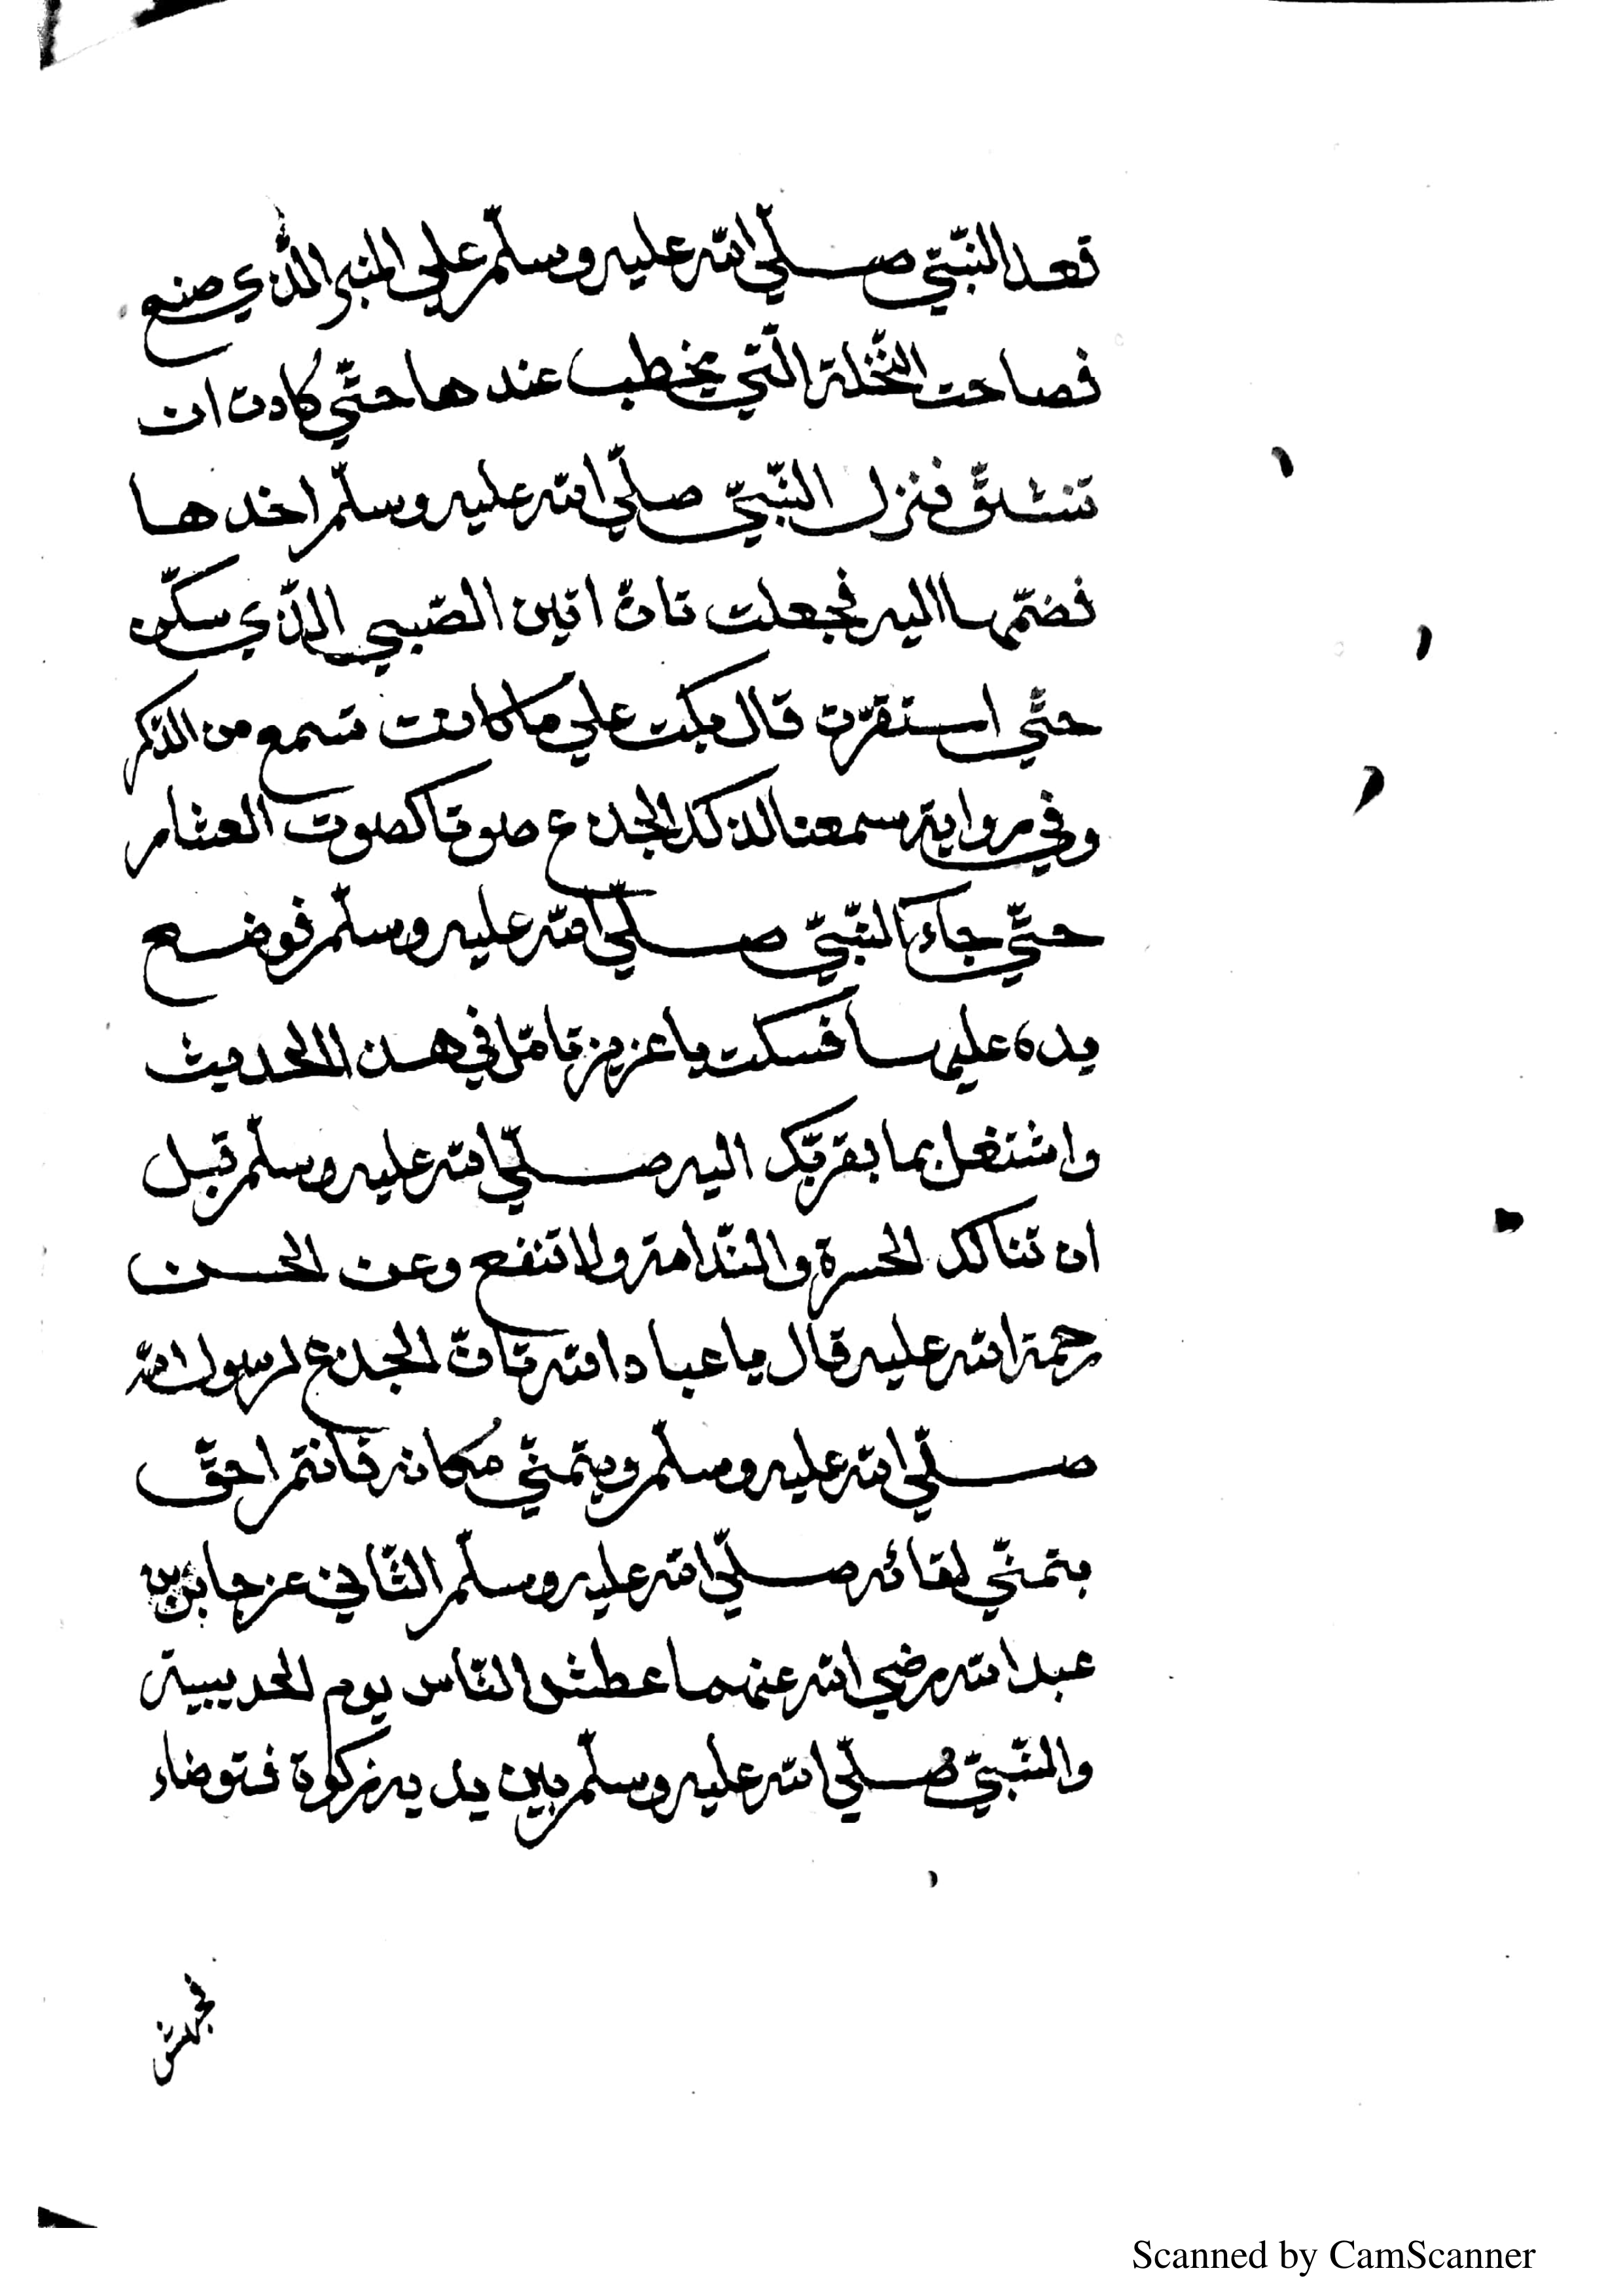 قعد النّبيّ صلّي الله عليه وسلّم علي المنبر الّذي صنع
فصاحت النّخلة الّتي يخطب عندها حتّي كادت ان
تنشقّ فنزل النّبيّ صلّي الله عليه وسلّم اخذها
فضمّها اليه فجعلت تانّ انين الصّبي الّذي سكّن
حتّي استقرّت قال بكت علي ما كانت تسمع من الذّكر
وفي رواية سمعنا لذلك الجذع صوتا كصوت العشار
حتّي جاءَ النّبيّ صلّي الله عليه وسلّم فوضع
يده عليها فسكت يا عزيز تامّل في هذا الحديث
واشتغل بما يقربّك اليه صلّي الله عليه وسلّم قبل
ان تنالك الحسرة والنّدامة ولا تنفع وعن الحسن
رحمة الله عليه قال يا عباد الله تانّ الجذع لرسول الله
صلّي الله عليه وسلّم ويتمنّي مكانه فانتم احقّ
بتمنّي لقائه صلّي الله عليه وسلّم الثّاني عن جابر بن
عبد الله رضي الله عنهما عطش النّاس يوم الحديبية
والنّبيّ صلّي الله عليه وسلّم بين يديه ركوة فتوضاء
Scanned by CamScanner